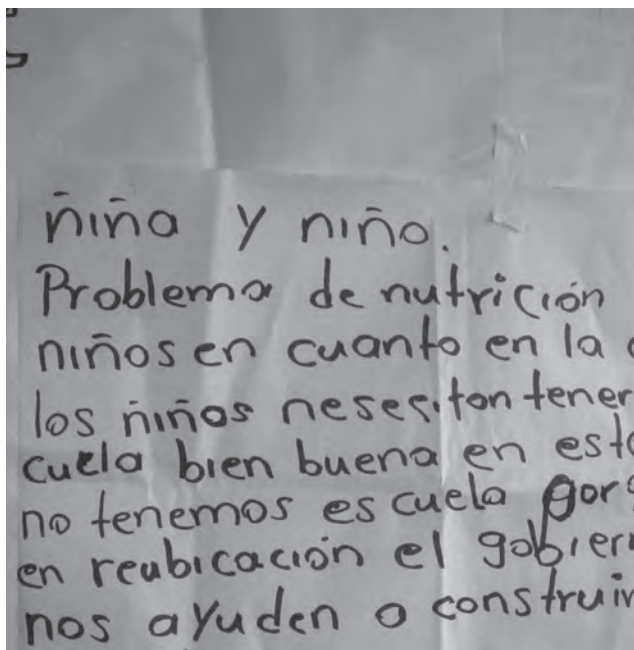 ñiña y niño.
Problema de nutrición
niños en cuanto en la
los ñiños nesesitan tener
cuela bien buena en
no tenemos escuela
en reubicación el
nos ayuden o construir